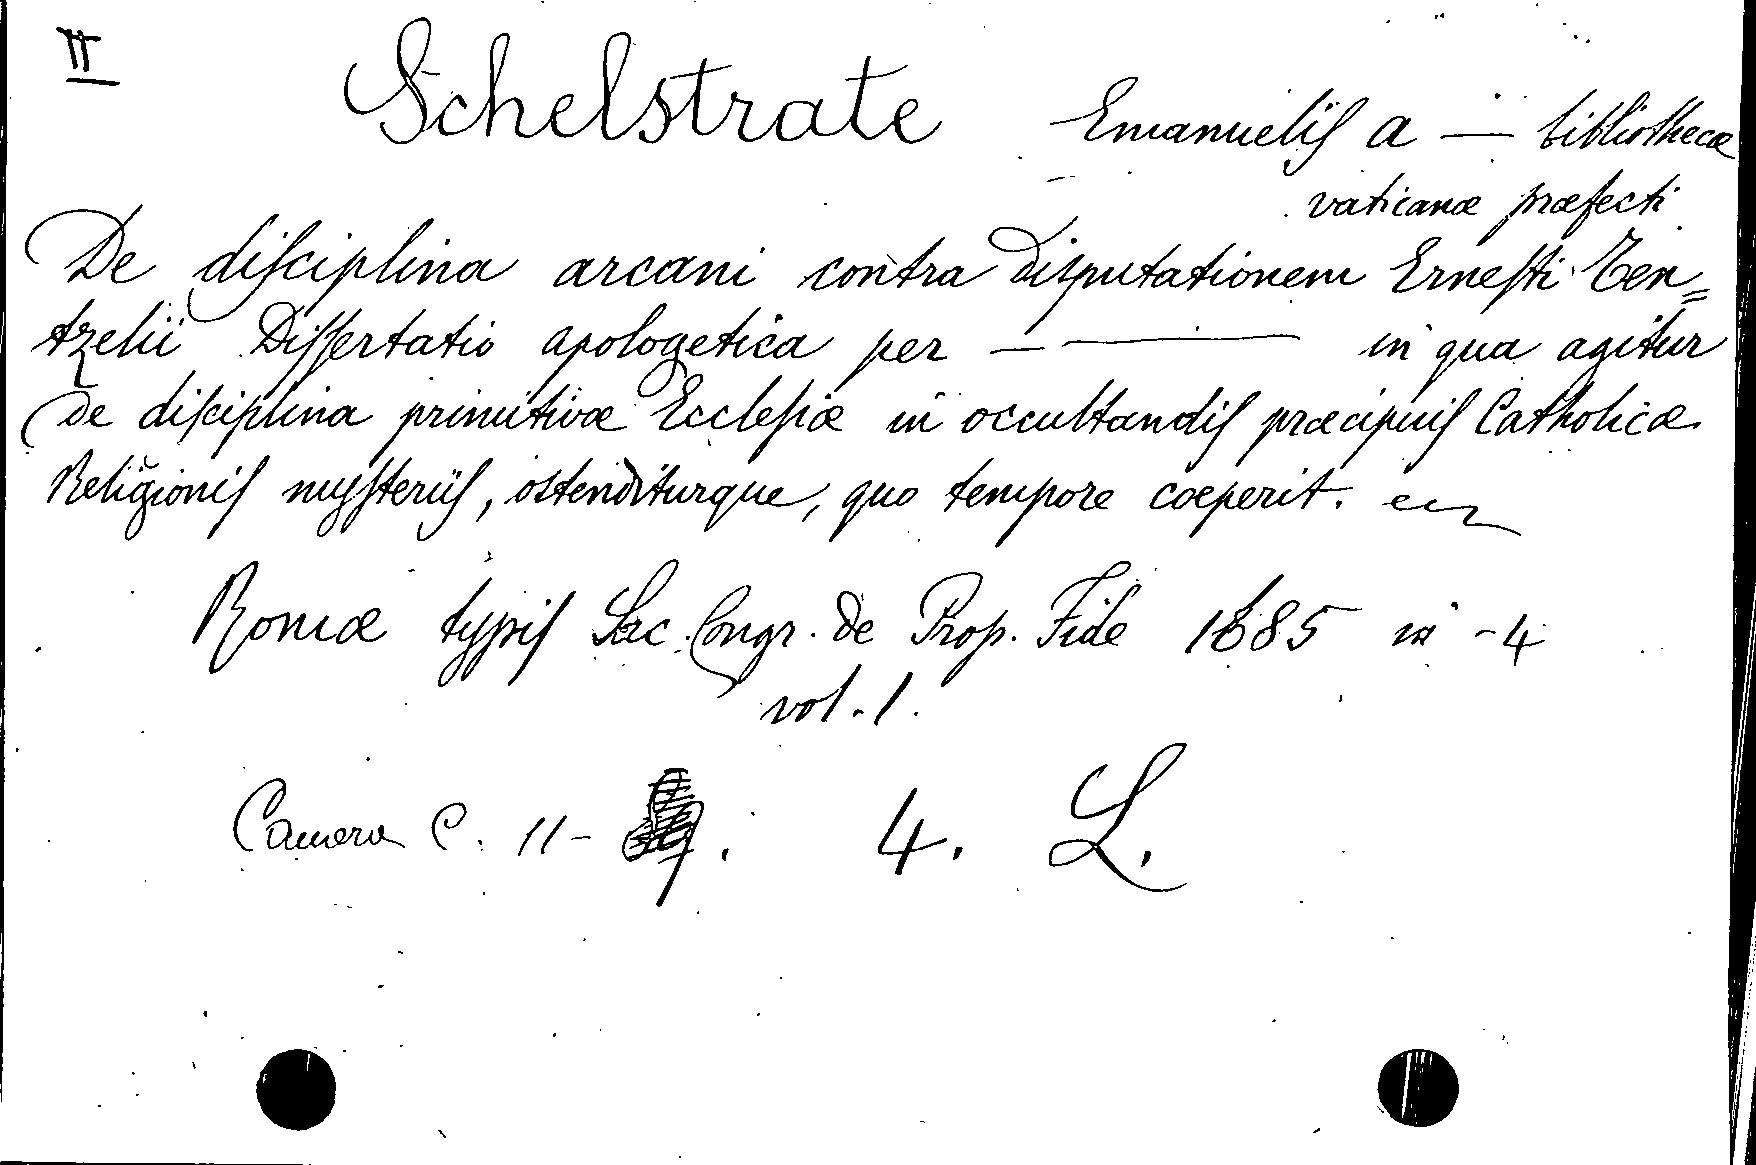 II
Schelstrate Emanuelis a — bibliothecæ
vaticanæ præfecti
De disciplina arcani contra disputationem Ernesti Ten=
tzelii Dissertatio apologetica per — — in qua agitur
de disciplina primitivæ Ecclesiæ in occultandis præcipuis Catholicæ
Religionis mysteriis, ostenditurque, quo tempore cœperit.
Romæ typis Sac. Congr. de Prop. Fide 1685 in -4
vol. 1.
Camera C. 11- . 4. L.